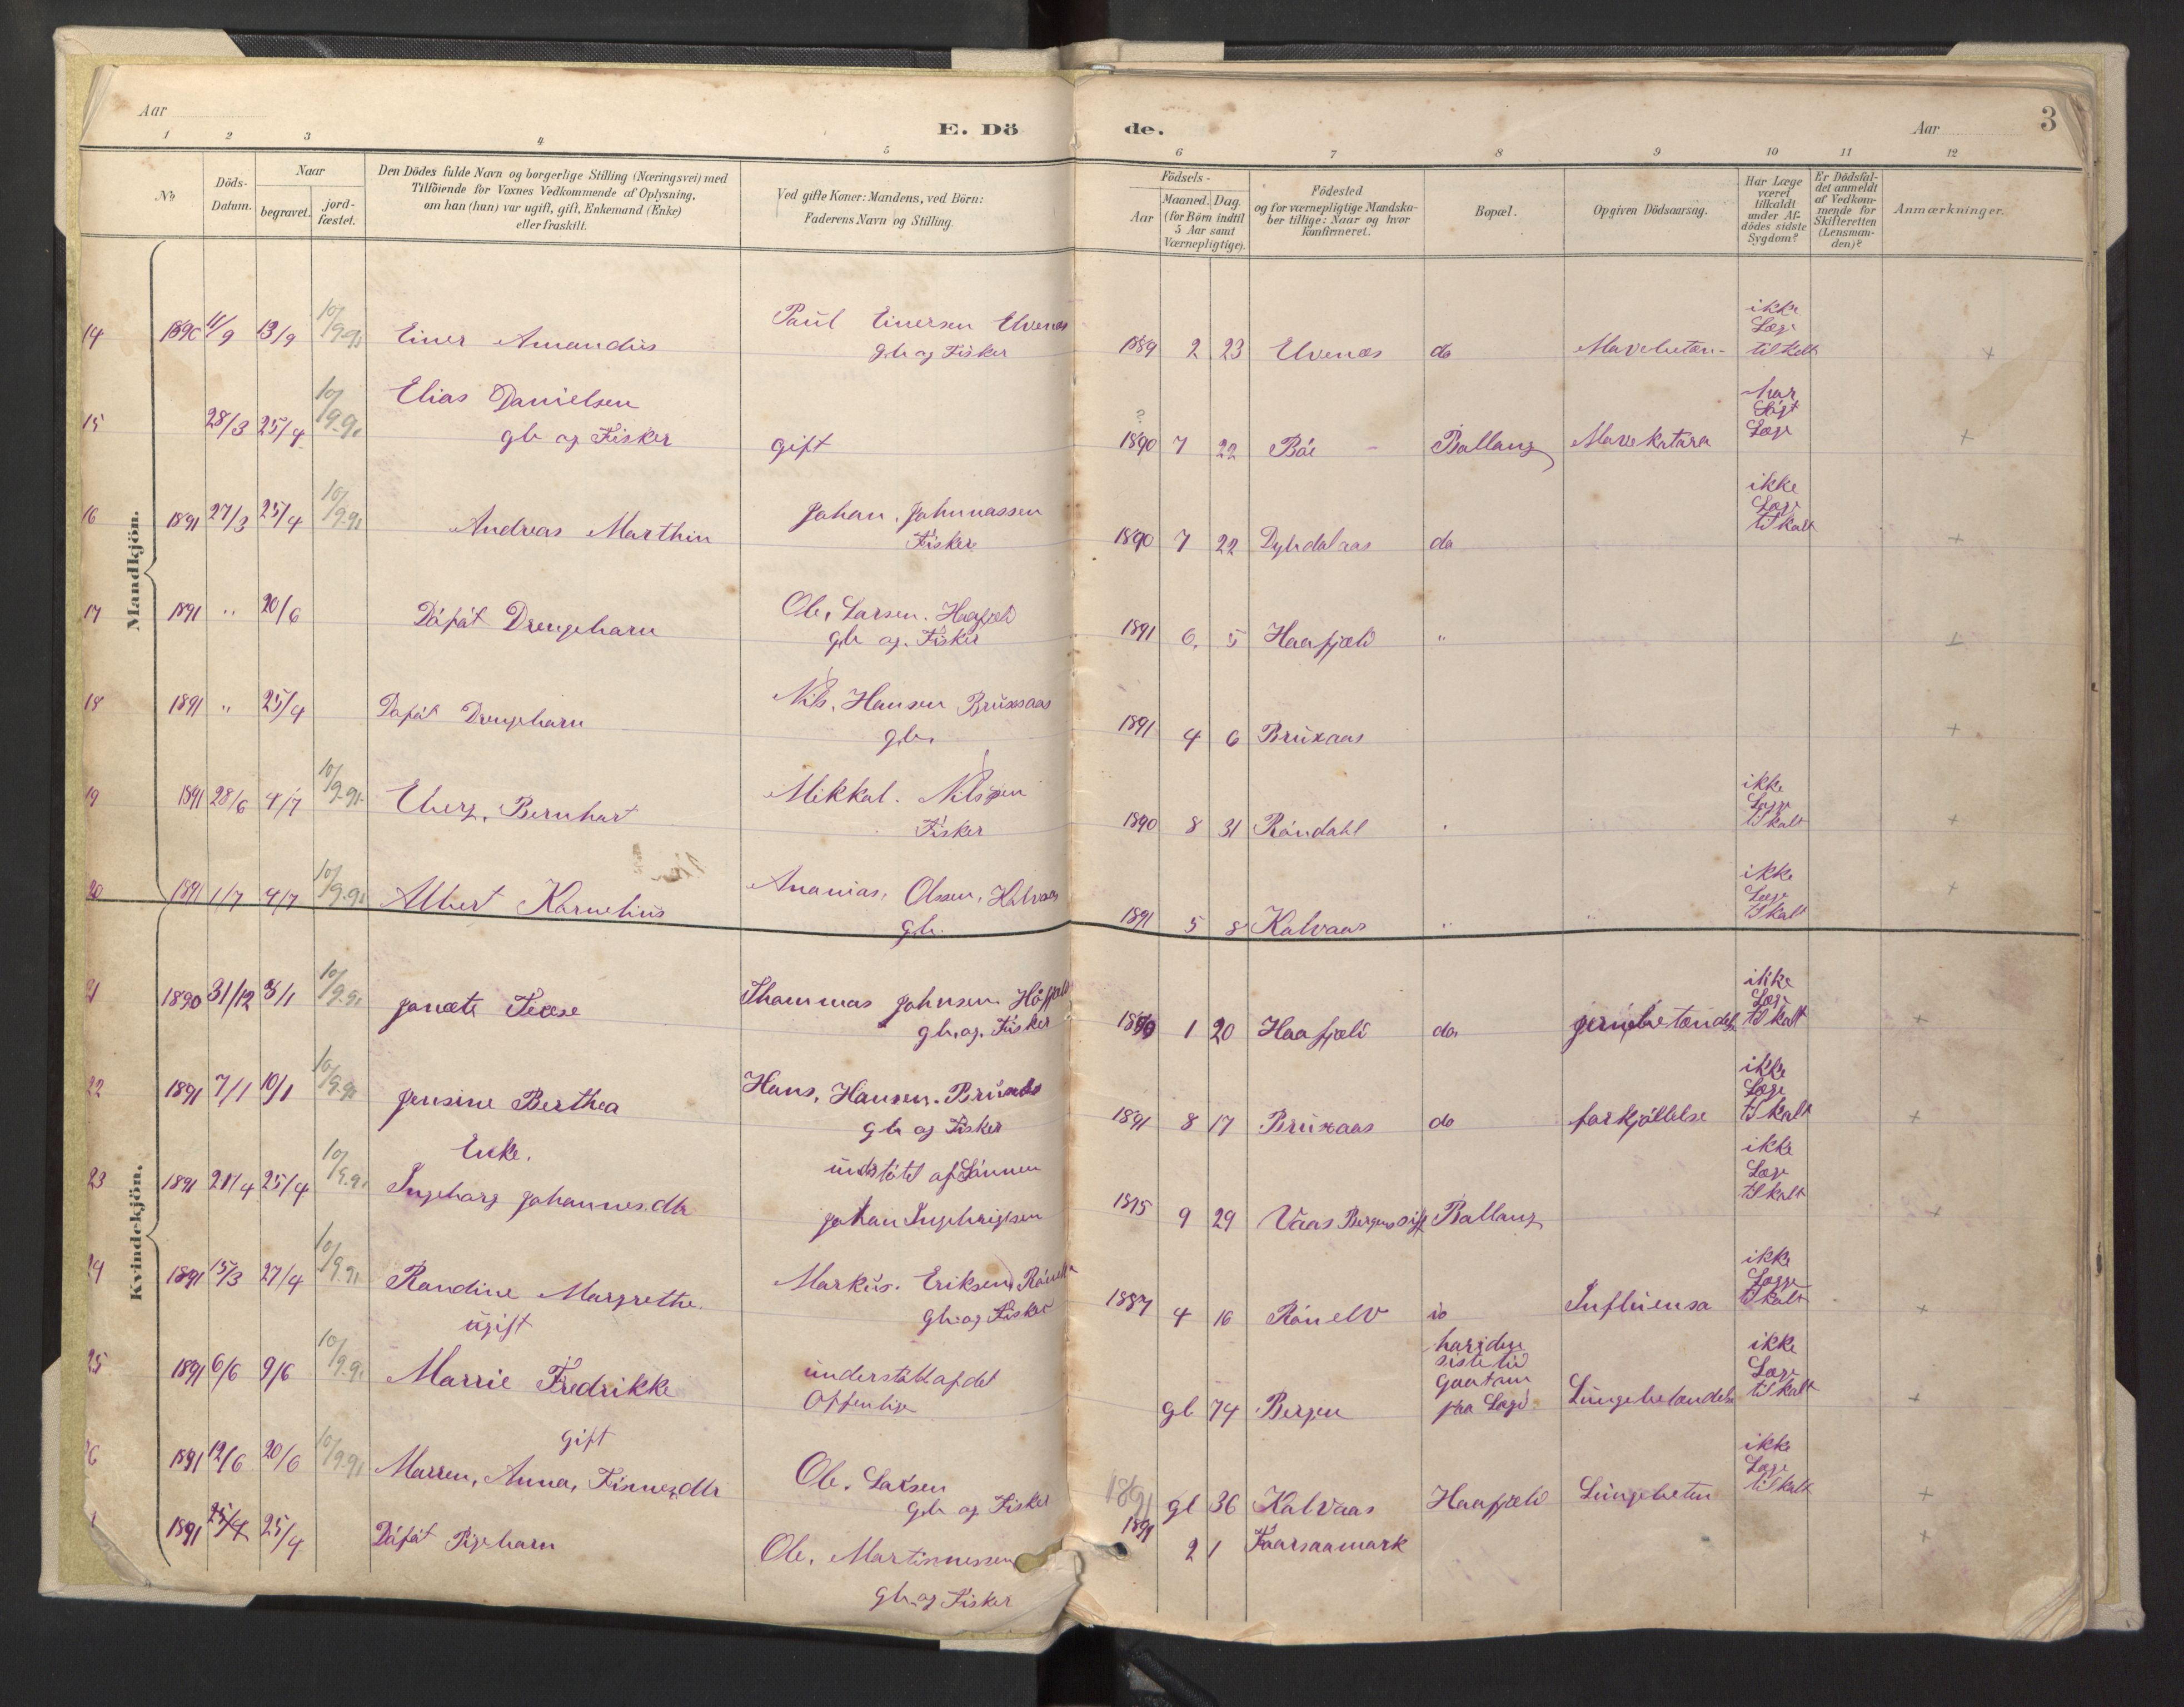 Aar
E. Döde.
Aar
3
1 2 3 4 5 6 7 8 9 10 11 12
No
Döds-Datum.
Naar
begravet.
jord-fæstet.
Den Dödes fulde Navn og borgerlige Stilling (Næringsvei) med
Tilföiende for Voxnes Vedkommende af Oplysning,
om han (hun) var ugift, gift, Enkemand (Enke)
eller fraskilt.
Ved gifte Koner: Mandens, ved Börn:
Faderens Navn og Stilling.
Födsels-
Aar
Maaned. Dag.
(for Börn indtil
5 Aar samt
Værnepligtige).
Födested
og for værnepligtige Mandska-
ber tillige: Naar og hvor
konfirmeret.
Bopæl.
Opgiven Dödsaarsag.
Har Læge
været
tilkaldt
under Af-
dödes sidste
Sygdom?
Er Dödsfal-
det anmeldt
af Vedkom-
mende for
Skifteretten
(Lensman-
den)?
Anmærkninger.
Mandkjön.
14 1890 11/9 13/9 10/9-91 Einer Amandus
Paul Einersen Elvenes
gb og Fisker
1889 2 23 Elvenæs do
ikke
Læge
tilkelt +
15 28/3 25/4 10/9-91 Elias Danielsen
gb og Fisker
gift
?
1890 7 22 Böe - Ballang Mavekatara
har
Sögt
Læge +
16 1891 27/3 25/4 10/9-91 Andreas Marthin
Johan. Johnnassen
Fisker
1890 7 22 do
ikke
Læge
tilkalt +
17 1891 " 20/6 Döföt Drengebarn
Ole, Larsen. Haafjeld
gb og. Fisker
1891 6, 5 Haafjeld " +
18 1891 " 25/4 Döföt Drengebarn
Nils, Hansen Bruxsaas
gb.
1891 4 6 Bruxaas +
19 1891 28/6 4/7 10/9-91 Eberg, Bernhart
Mikkal. Nilsen
Fisker
1890 8 31 Röndahl
ikke
Læge
tilkalt +
20 1891 1/7 4/7 10/9-91 Albert Kornelius
Ananias, Olssen, Kalvaas
gb.
1891 5 8 Kalvaas "
ikke
Læge
tilkalt +
Kvindekjön.
21 1890 31/12 3/1 10/9-91
Thammas Johnsen Höfjeld
gb. og. Fisker
1890 1 20 Haafjeld do.
ikke
Læge
tilkalt +
22 1891 7/1 10/1 10/9-91 Jensine Berthea
Hans, Hansen. Bruxaas
gb og Fisker
1891 8 17 Bruxaas do forkjölelse
ikke
Læge
tilkalt +
Enke.
23 1891 21/4 25/4 10/9-91 Ingeborg Johannes.dtr
af Sönnen
Johan Ingebrigtsen
9 29 Vaas Bergens Ballang
ikke
Læge
tilkalt +
24 1891 15/3 27/4 10/9-91 Randine Margrethe.
Markus. Eriksen, Rönelv
gb og Fisker
1887 4 16 Rönelv Influensa
ikke
Læge
tilkalt +
ugift
25 1891 6/6 9/6 10/9-91 Marrie Fredrikke
understöttet af det
Offentlige
gl 74 Bergen
siste tid
paa Lægd. Lungebetændelse
ikke
Læge
tilkalt +
gift
26 1891 12/6 20/6 10/9-91 Marren, Anna, Finnesdtr
Ole. Larsen
gb og Fisker
1891 gl 36 Kalvaas Haafjeld Lungebeten
ikke
Læge
tilkalt +
1891 25/4 25/4 Döföt Pigebarn
Ole, Martinnessen
gb og Fisker
1891 2 1 +